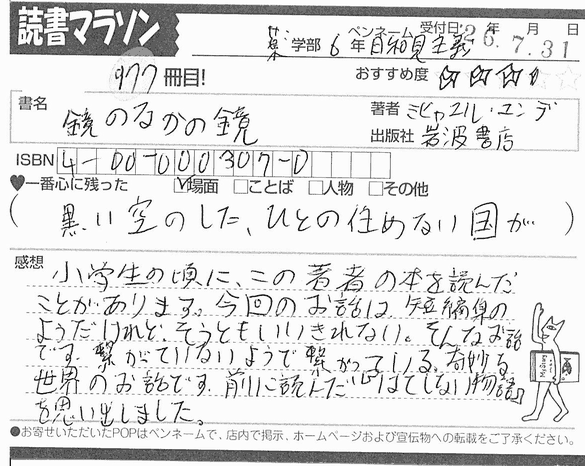 読書マラソン
学部 6年 ペンネーム 日和見主義 受付日:'26年7月31日
977冊目! おすすめ度
書名 鏡のなかの鏡
著者 ミヒャエル・エンデ
出版社 岩波書店
ISBN 4-00-000307-0
♥一番心に残った ☑場面 □ことば □人物 □その他
(黒い空のした、ひとの住めない国が)
感想 小学生の頃に、この著者の本を読んだ
ことがあります。今回のお話は、短編集の
ようだけれど、そうともいいきれない。そんなお話
です。繋がっていないようで繋がっている。奇妙な
世界のお話です。前に読んだ「はてしない物語」
を思い出しました。
●お寄せいただいたPOPはペンネームで、店内で掲示、ホームページおよび宣伝物への転載をご了承ください。